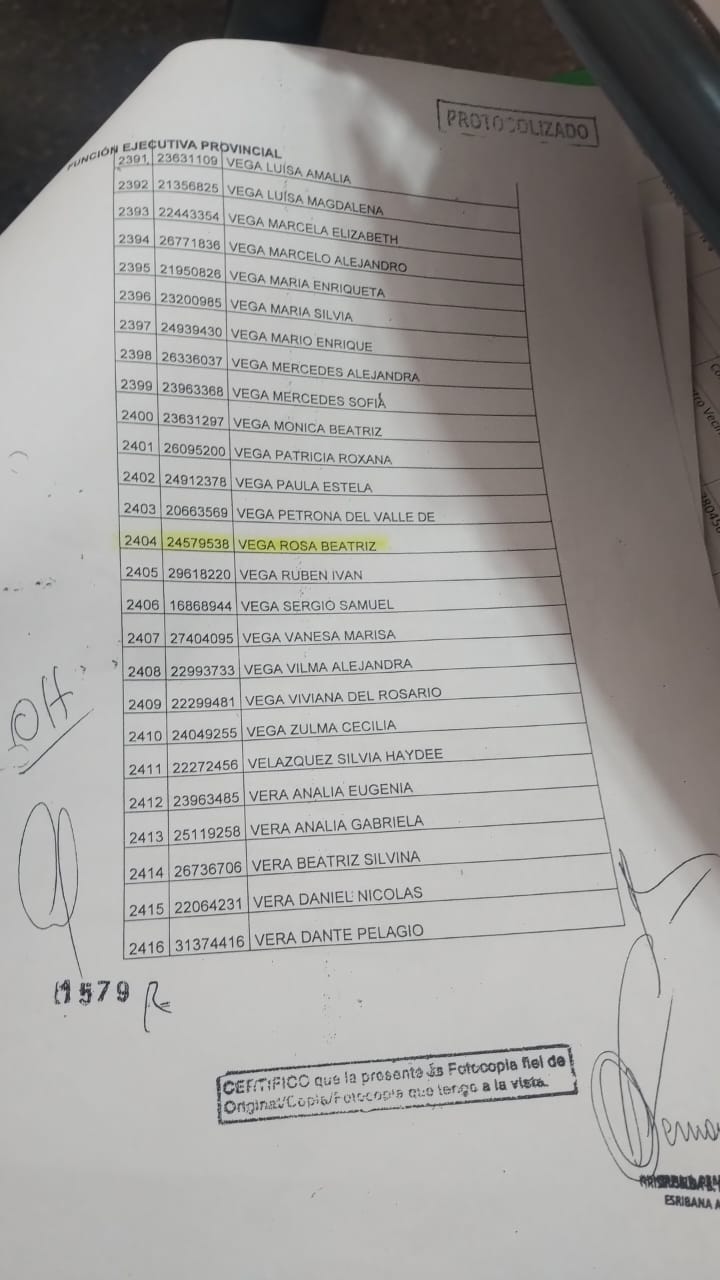 PROTOCOLIZADO
FUNCIÓN EJECUTIVA PROVINCIAL
2391 23631109 VEGA LUISA AMALIA
2392 21356825 VEGA LUISA MAGDALENA
2393 22443354 VEGA MARCELA ELIZABETH
2394 26771836 VEGA MARCELO ALEJANDRO
2395 21950826 VEGA MARIA ENRIQUETA
2396 23200985 VEGA MARIA SILVIA
2397 24939430 VEGA MARIO ENRIQUE
2398 26336037 VEGA MERCEDES ALEJANDRA
2399 23963368 VEGA MERCEDES SOFIA
2400 23631297 VEGA MONICA BEATRIZ
2401 26095200 VEGA PATRICIA ROXANA
2402 24912378 VEGA PAULA ESTELA
2403 20663569 VEGA PETRONA DEL VALLE DE
2404 24579538 VEGA ROSA BEATRIZ
2405 29618220 VEGA RUBEN IVAN
2406 16868944 VEGA SERGIO SAMUEL
2407 27404095 VEGA VANESA MARISA
2408 22993733 VEGA VILMA ALEJANDRA
2409 22299481 VEGA VIVIANA DEL ROSARIO
2410 24049255 VEGA ZULMA CECILIA
2411 22272456 VELAZQUEZ SILVIA HAYDEE
2412 23963485 VERA ANALIA EUGENIA
2413 25119258 VERA ANALIA GABRIELA
2414 26736706 VERA BEATRIZ SILVINA
2415 22064231 VERA DANIEL NICOLAS
2416 31374416 VERA DANTE PELAGIO
1579
CERTIFICO que la presente es Fotocopia fiel de
Original/Copia/Fotocopia que tengo a la vista.
ESRIBANA A